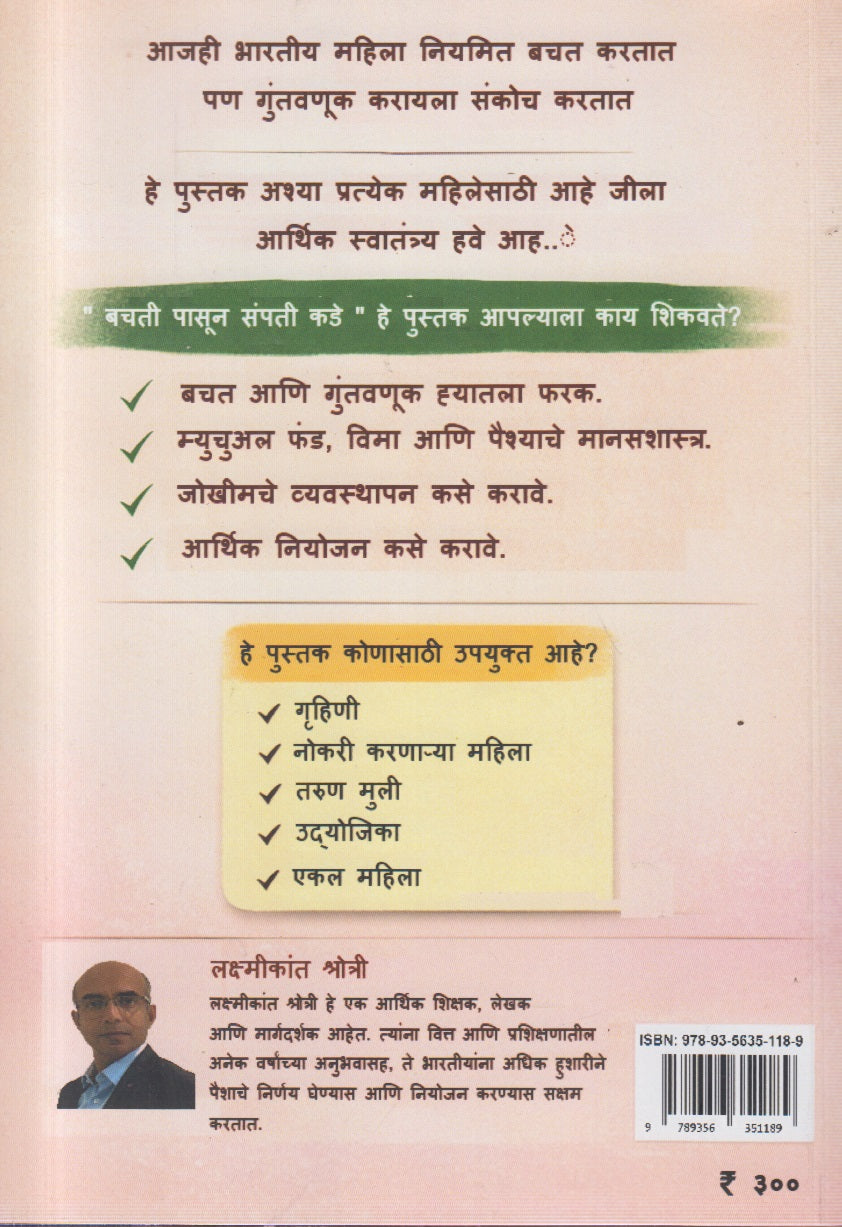 आजही भारतीय महिला नियमित बचत करतात
पण गुंतवणूक करायला संकोच करतात
हे पुस्तक अश्या प्रत्येक महिलेसाठी आहे जीला
आर्थिक स्वातंत्र्य हवे आह..े
" बचती पासून संपती कडे " हे पुस्तक आपल्याला काय शिकवते?
बचत आणि गुंतवणूक ह्यातला फरक.
म्युचुअल फंड, विमा आणि पैश्याचे मानसशास्त्र.
जोखीमचे व्यवस्थापन कसे करावे.
आर्थिक नियोजन कसे करावे.
हे पुस्तक कोणासाठी उपयुक्त आहे?
गृहिणी
नोकरी करणाऱ्या महिला
तरुण मुली
उद्योजिका
एकल महिला
लक्ष्मीकांत श्रोत्री
लक्ष्मीकांत श्रोत्री हे एक आर्थिक शिक्षक, लेखक
आणि मार्गदर्शक आहेत. त्यांना वित्त आणि प्रशिक्षणातील
अनेक वर्षांच्या अनुभवासह, ते भारतीयांना अधिक हुशारीने
पैशाचे निर्णय घेण्यास आणि नियोजन करण्यास सक्षम
करतात.
ISBN: 978-93-5635-118-9
9 789356 351189
₹ ३००